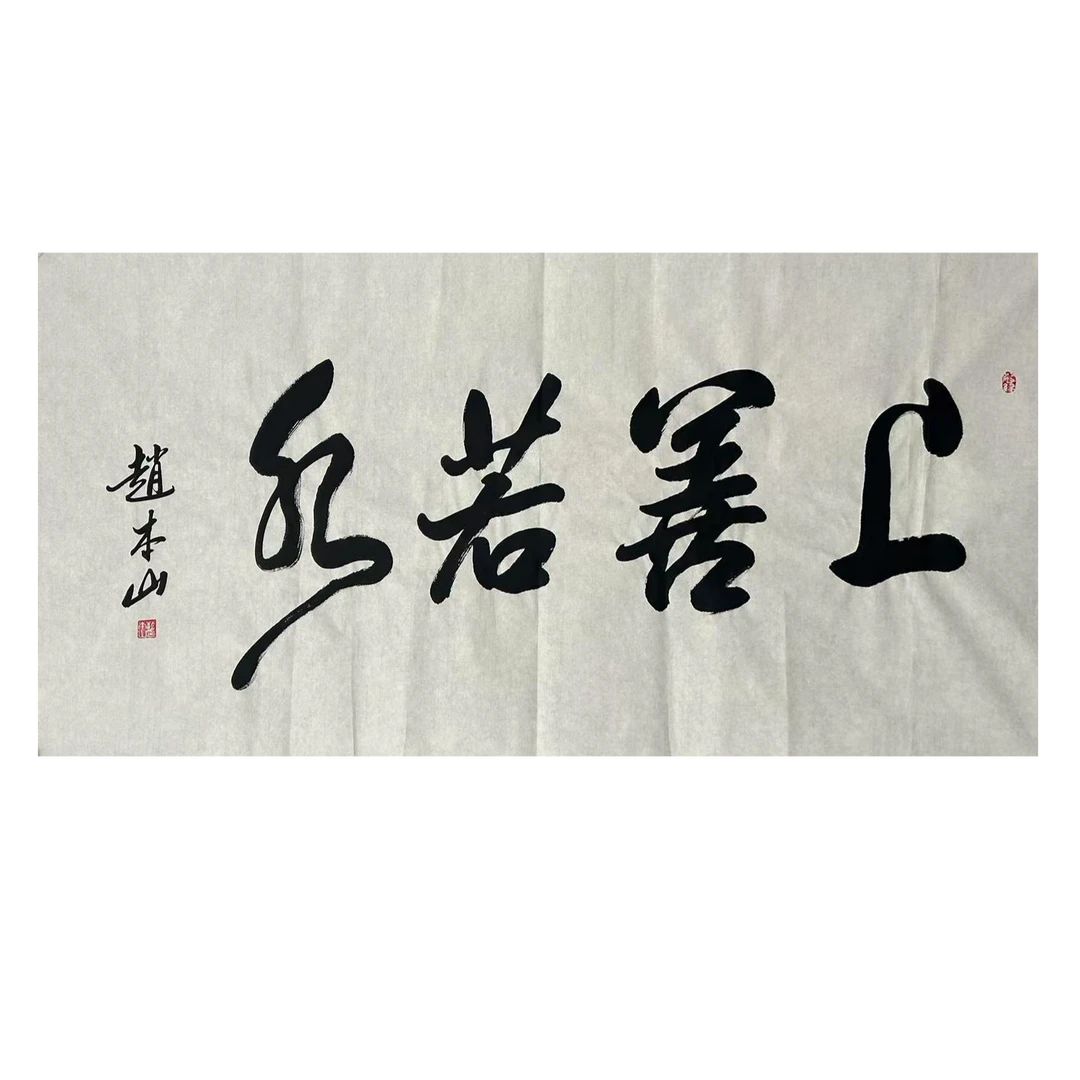 上善若水
趙本山